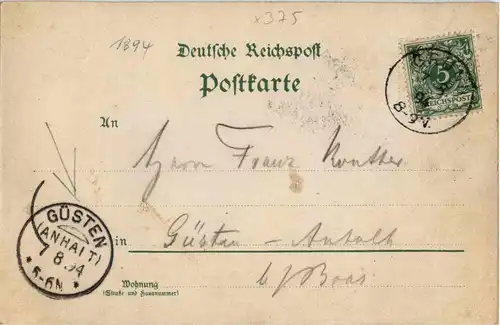 x375
1894
Deutsche Reichspost
Postkarte
5
REICHSPOST
8-9V.
An
Herrn Franz
GÜSTEN
(ANHALT)
7 8.94
* 5-6N *
in Güsten - Anhalt
Wohnung
(Straße und Hausnummer)